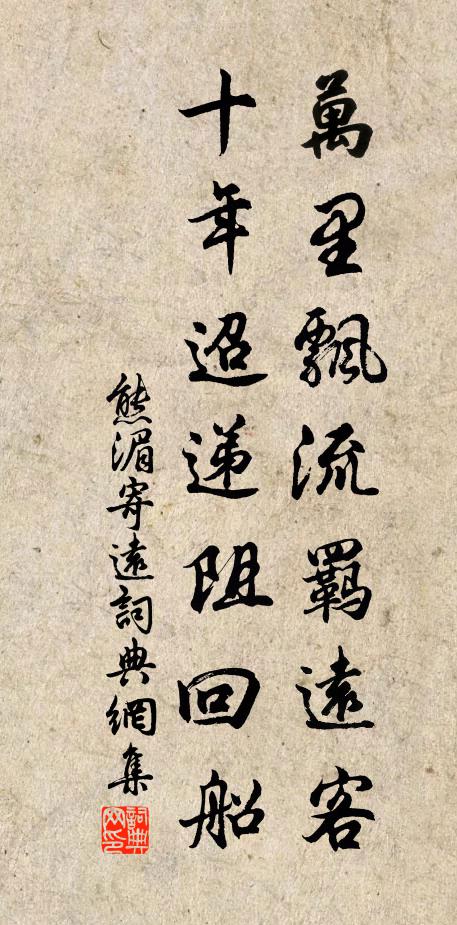 萬里飄流羈遠客
十年迢递阻回船
熊湄寄遠詞典網集
詞典网印